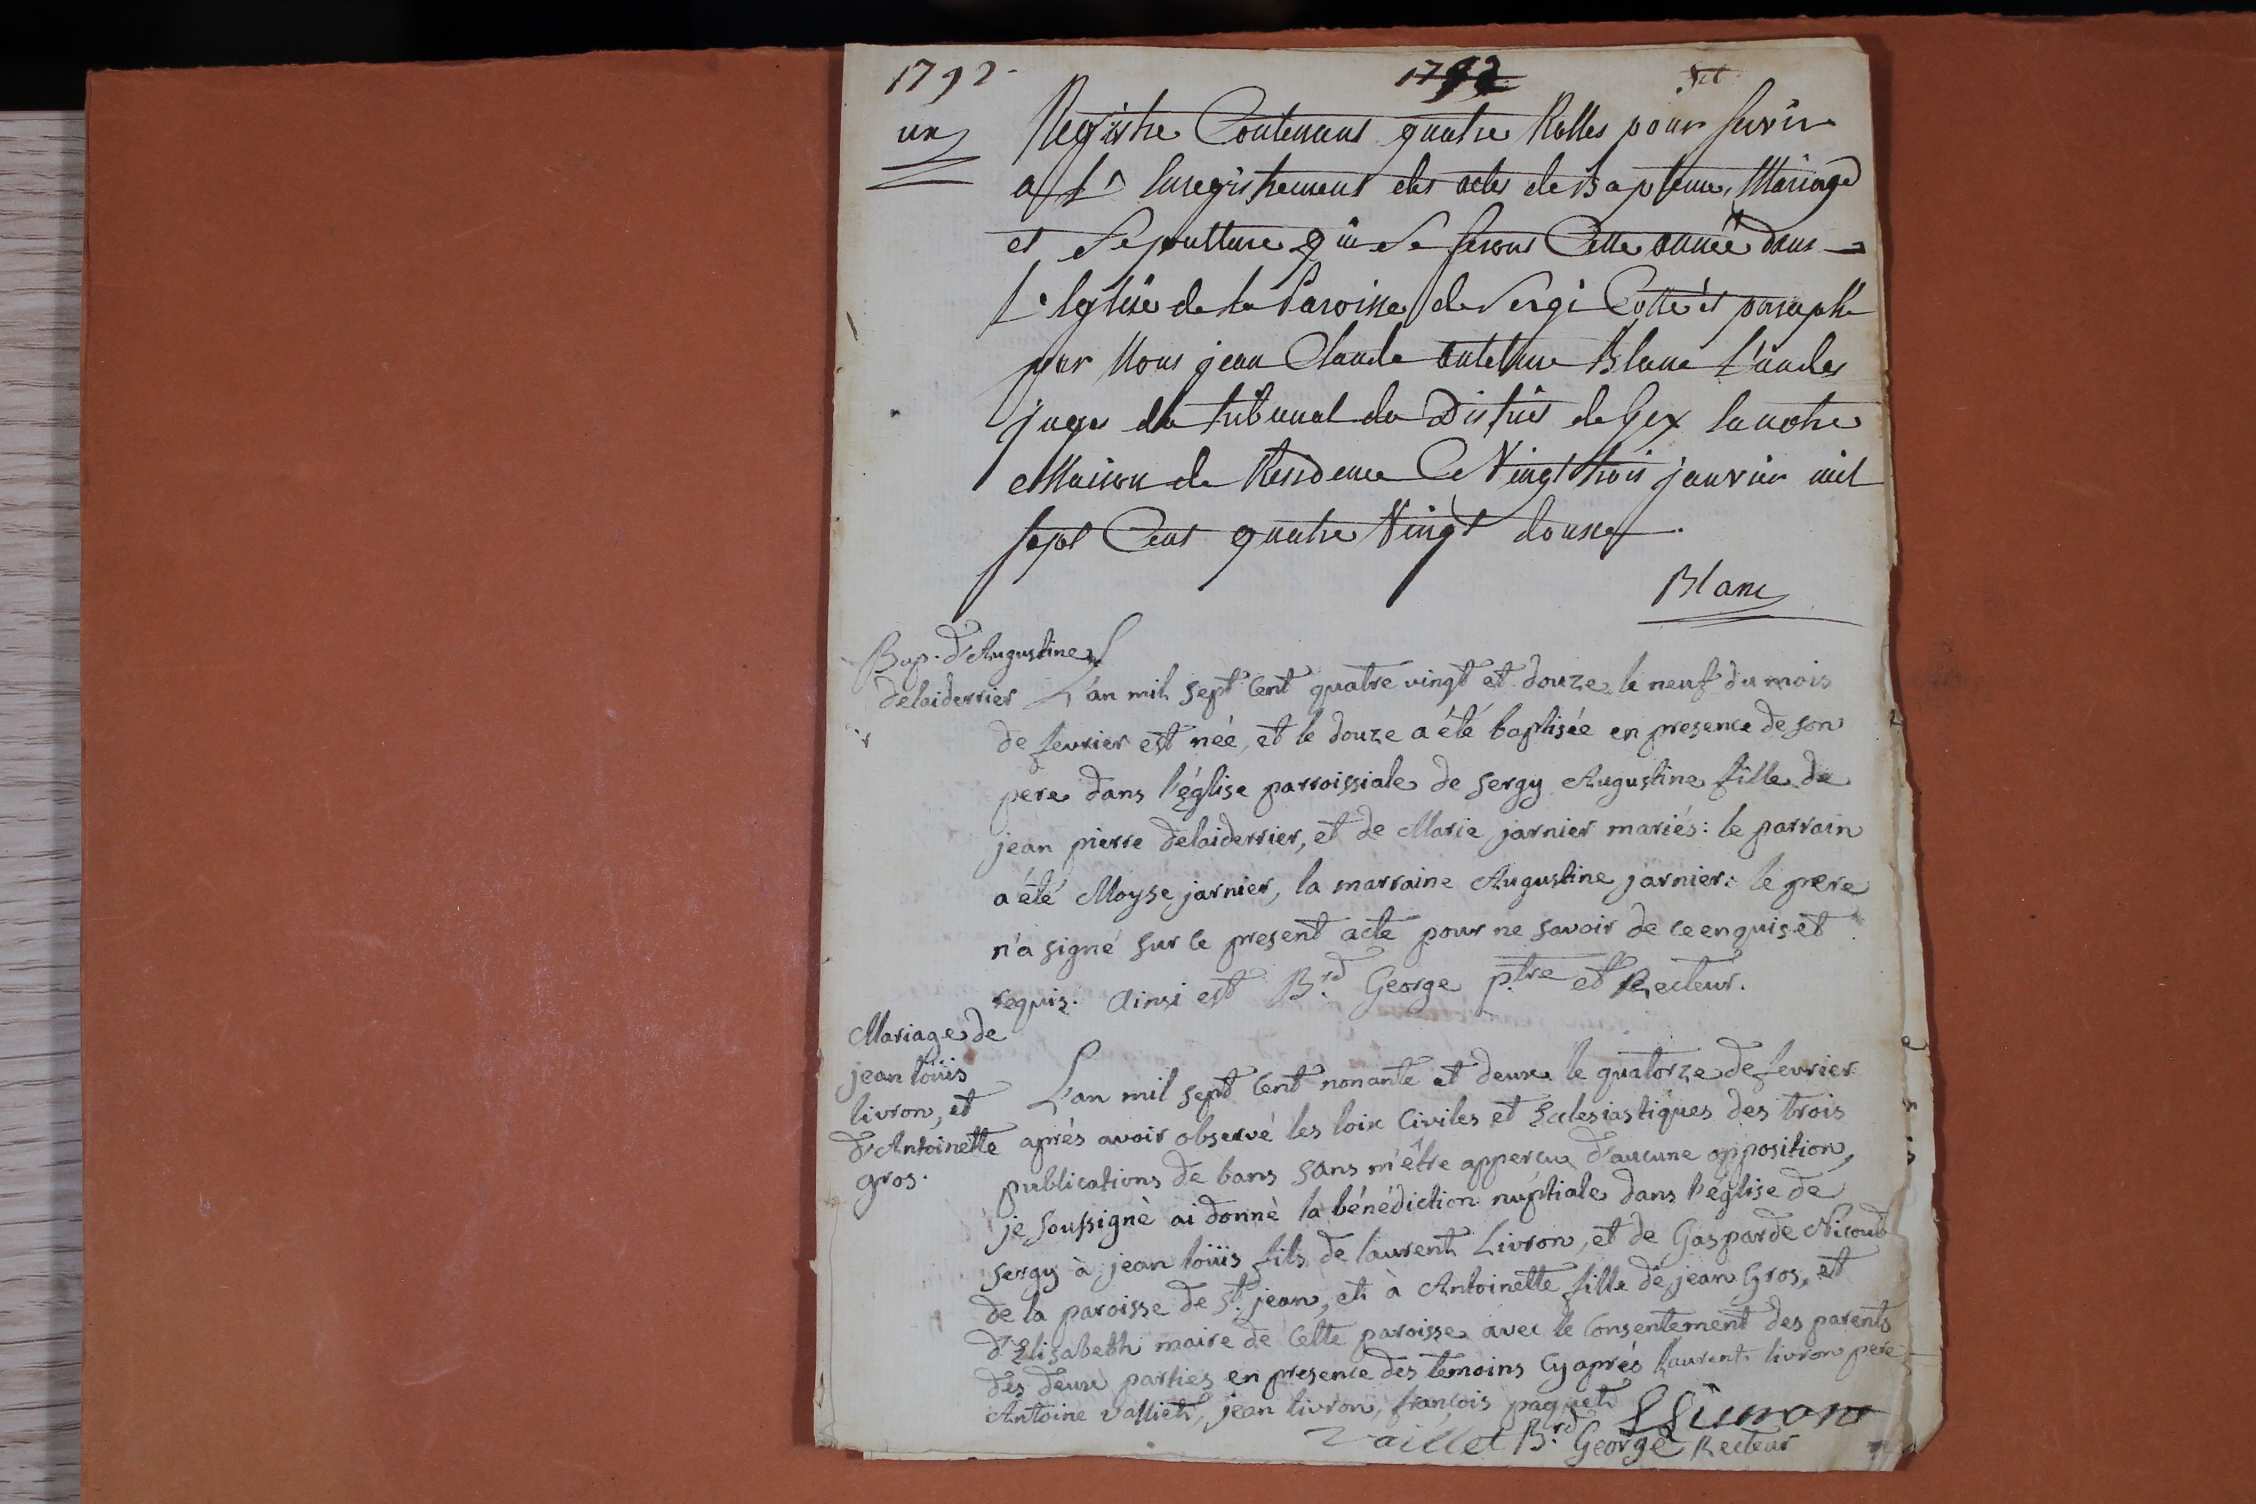 1792
1792
un
Registre Contenant quatre Rolles pour servir
a L'Enregistrement des actes de Bapteme, Mariage
et Sepulture qui se feront Cette année dans
L'Eglise de la Paroisse de Sergi Cotté et paraphé
par Nous jean Claude Blanc L'un des
juges du tribunal du District de Gex En notre
Maison de Residence Ce Vingt trois janvier mil
sept Cent quatre Vingt douze.
Blanc
Bap. d'Augustine
delaiderrier
L'an mil sept cent quatre vingt et douze le neuf du mois
de fevrier est née, et le douze a été baptisée en presence de son
pere dans l'église parroissiale de sergy Augustine fille de
jean pierre delaiderrier, et de Marie jarnier mariés: le parrain
a été Moyse jarnier, la marraine Augustine jarnier: le pere
n'a signé sur ce present acte pour ne savoir de ce enquis et
requis. Ainsi est B.rd George p.tre et Recteur.
Mariage de
jean loüis
livron, et
d'Antoinette
gros.
L'an mil sept cent nonante et deux le quatorze de fevrier
aprés avoir observé les loix Civiles et Ecclesiastiques des trois
publications de bans sans m'être apperçu d'aucune opposition,
je soussigné ai donné la bénédiction nuptiale dans l'église de
sergy à jean loüis fils de laurent Livron, et de Gasparde Nicoud
de la paroisse de St. jean, et à Antoinette fille de jean Gros, et
d'Elisabeth maire de Cette paroisse avec le Consentement des parents
des deux parties en presence des temoins Cyaprés laurent livron pere
Antoine valliet, jean livron, françois paquet
LLivron
Vaillet B.rd George Recteur